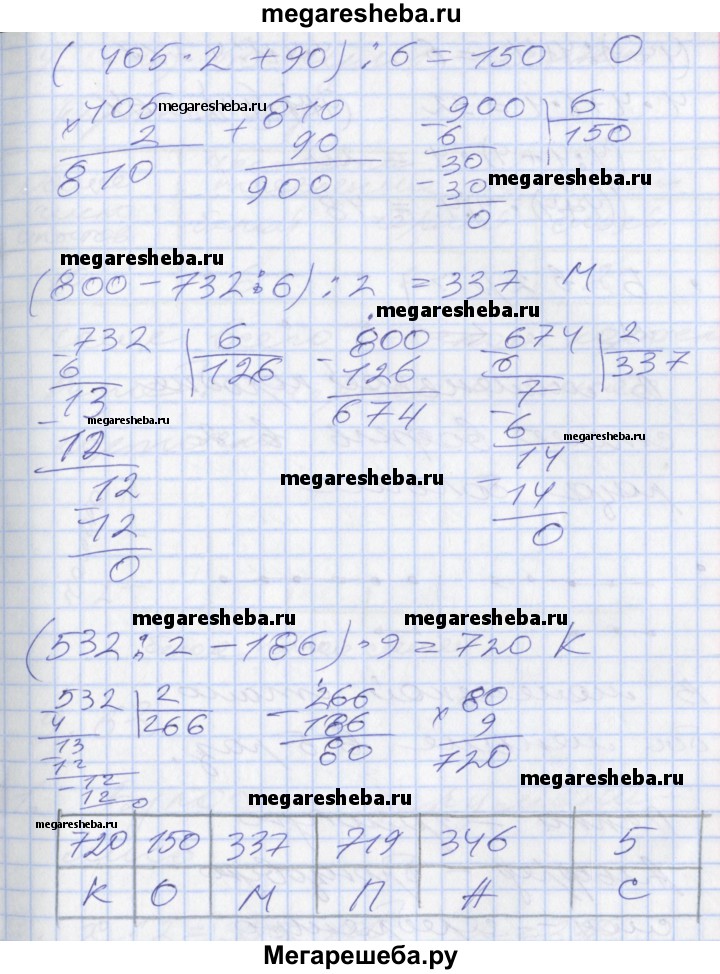 megaresheba.ru
(405 · 2 + 90) : 6 = 150 О
× 405 megaresheba.ru + 810 - 900 | 6
2 90 6 150
810 900 30
- 30 megaresheba.ru
0
megaresheba.ru
(800 - 732 : 6) : 2 = 337 М
megaresheba.ru
- 732 | 6 - 800 - 674 | 2
6 126 126 6 337
13 674 7
- megaresheba.ru -
12 6 megaresheba.ru
12 14
megaresheba.ru
- 12 - 14
0 0
megaresheba.ru megaresheba.ru
(532 : 2 - 186) · 9 = 720 К
- 532 | 2 - 266 × 80
4 266 186 9
- 13 80 720
12
- 12 megaresheba.ru
12 0 megaresheba.ru
megaresheba.ru
720 150 337 719 346 5
К О М П А С
Мегарешеба.ру